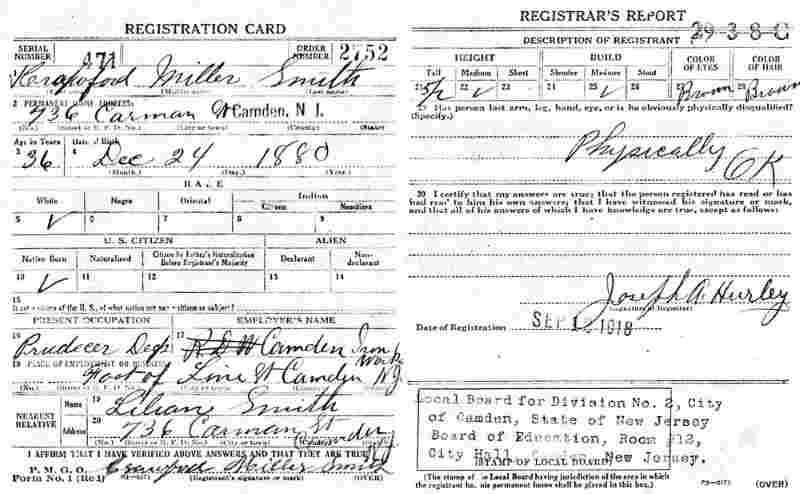 REGISTRATION CARD
SERIAL NUMBER 471 ORDER NUMBER 2752
Krawford Miller Smith
(First name) (Middle name) (Last name)
2 PERMANENT HOME ADDRESS:
736 Carman St Camden, N. J.
(No.) (Street or R. F. D. No.) (City or town) (County) (State)
Age in Years Date of Birth
3 36 4 Dec 24 1880
(Month.) (Day.) (Year.)
RACE
White Negro Oriental Indian
Citizen Noncitizen
5 ✓ 6 7 8 9
U. S. CITIZEN ALIEN
Native Born Naturalized Citizen by Father's Naturalization Before Registrant's Majority Declarant Non-declarant
10 ✓ 11 12 13 14
15
If not a citizen of the U. S., of what nation are you a citizen or subject?
PRESENT OCCUPATION EMPLOYER'S NAME
16 Prudecer Dept 17 Camden Iron Works
18 PLACE OF EMPLOYMENT OR BUSINESS:
Foot of Line St Camden NJ
(No.) (Street or R. F. D. No.) (City or town) (County) (State)
NEAREST RELATIVE Name 19 Lilian Smith
Address 20 736 Carman St Camden NJ
(No.) (Street or R. F. D. No.) (City or town) (County) (State)
I AFFIRM THAT I HAVE VERIFIED ABOVE ANSWERS AND THAT THEY ARE TRUE
P. M. G. O.
Form No. 1 (Red) Crawford Miller Smith
(Registrant's signature or mark) (OVER)
REGISTRAR'S REPORT
29-3-8-C
DESCRIPTION OF REGISTRANT
HEIGHT BUILD COLOR OF EYES COLOR OF HAIR
Tall Medium Short Slender Medium Stout
21 22 ✓ 23 24 25 ✓ 26 27 Brown 28 Brown
29 Has person lost arm, leg, hand, eye, or is he obviously physically disqualified?
(Specify.)
Physically OK
30 I certify that my answers are true; that the person registered has read or has
had read to him his own answers; that I have witnessed his signature or mark,
and that all of his answers of which I have knowledge are true, except as follows:
Joseph A. Hurley
(Signature of Registrar)
Date of Registration SEP 12 1918
Local Board for Division No. 2, City
of Camden, State of New Jersey
Board of Education, Room #12,
City Hall Camden New Jersey.
(STAMP OF LOCAL BOARD)
(The stamp of the Local Board having jurisdiction of the area in which
the registrant has his permanent home shall be placed in this box.)
(OVER)